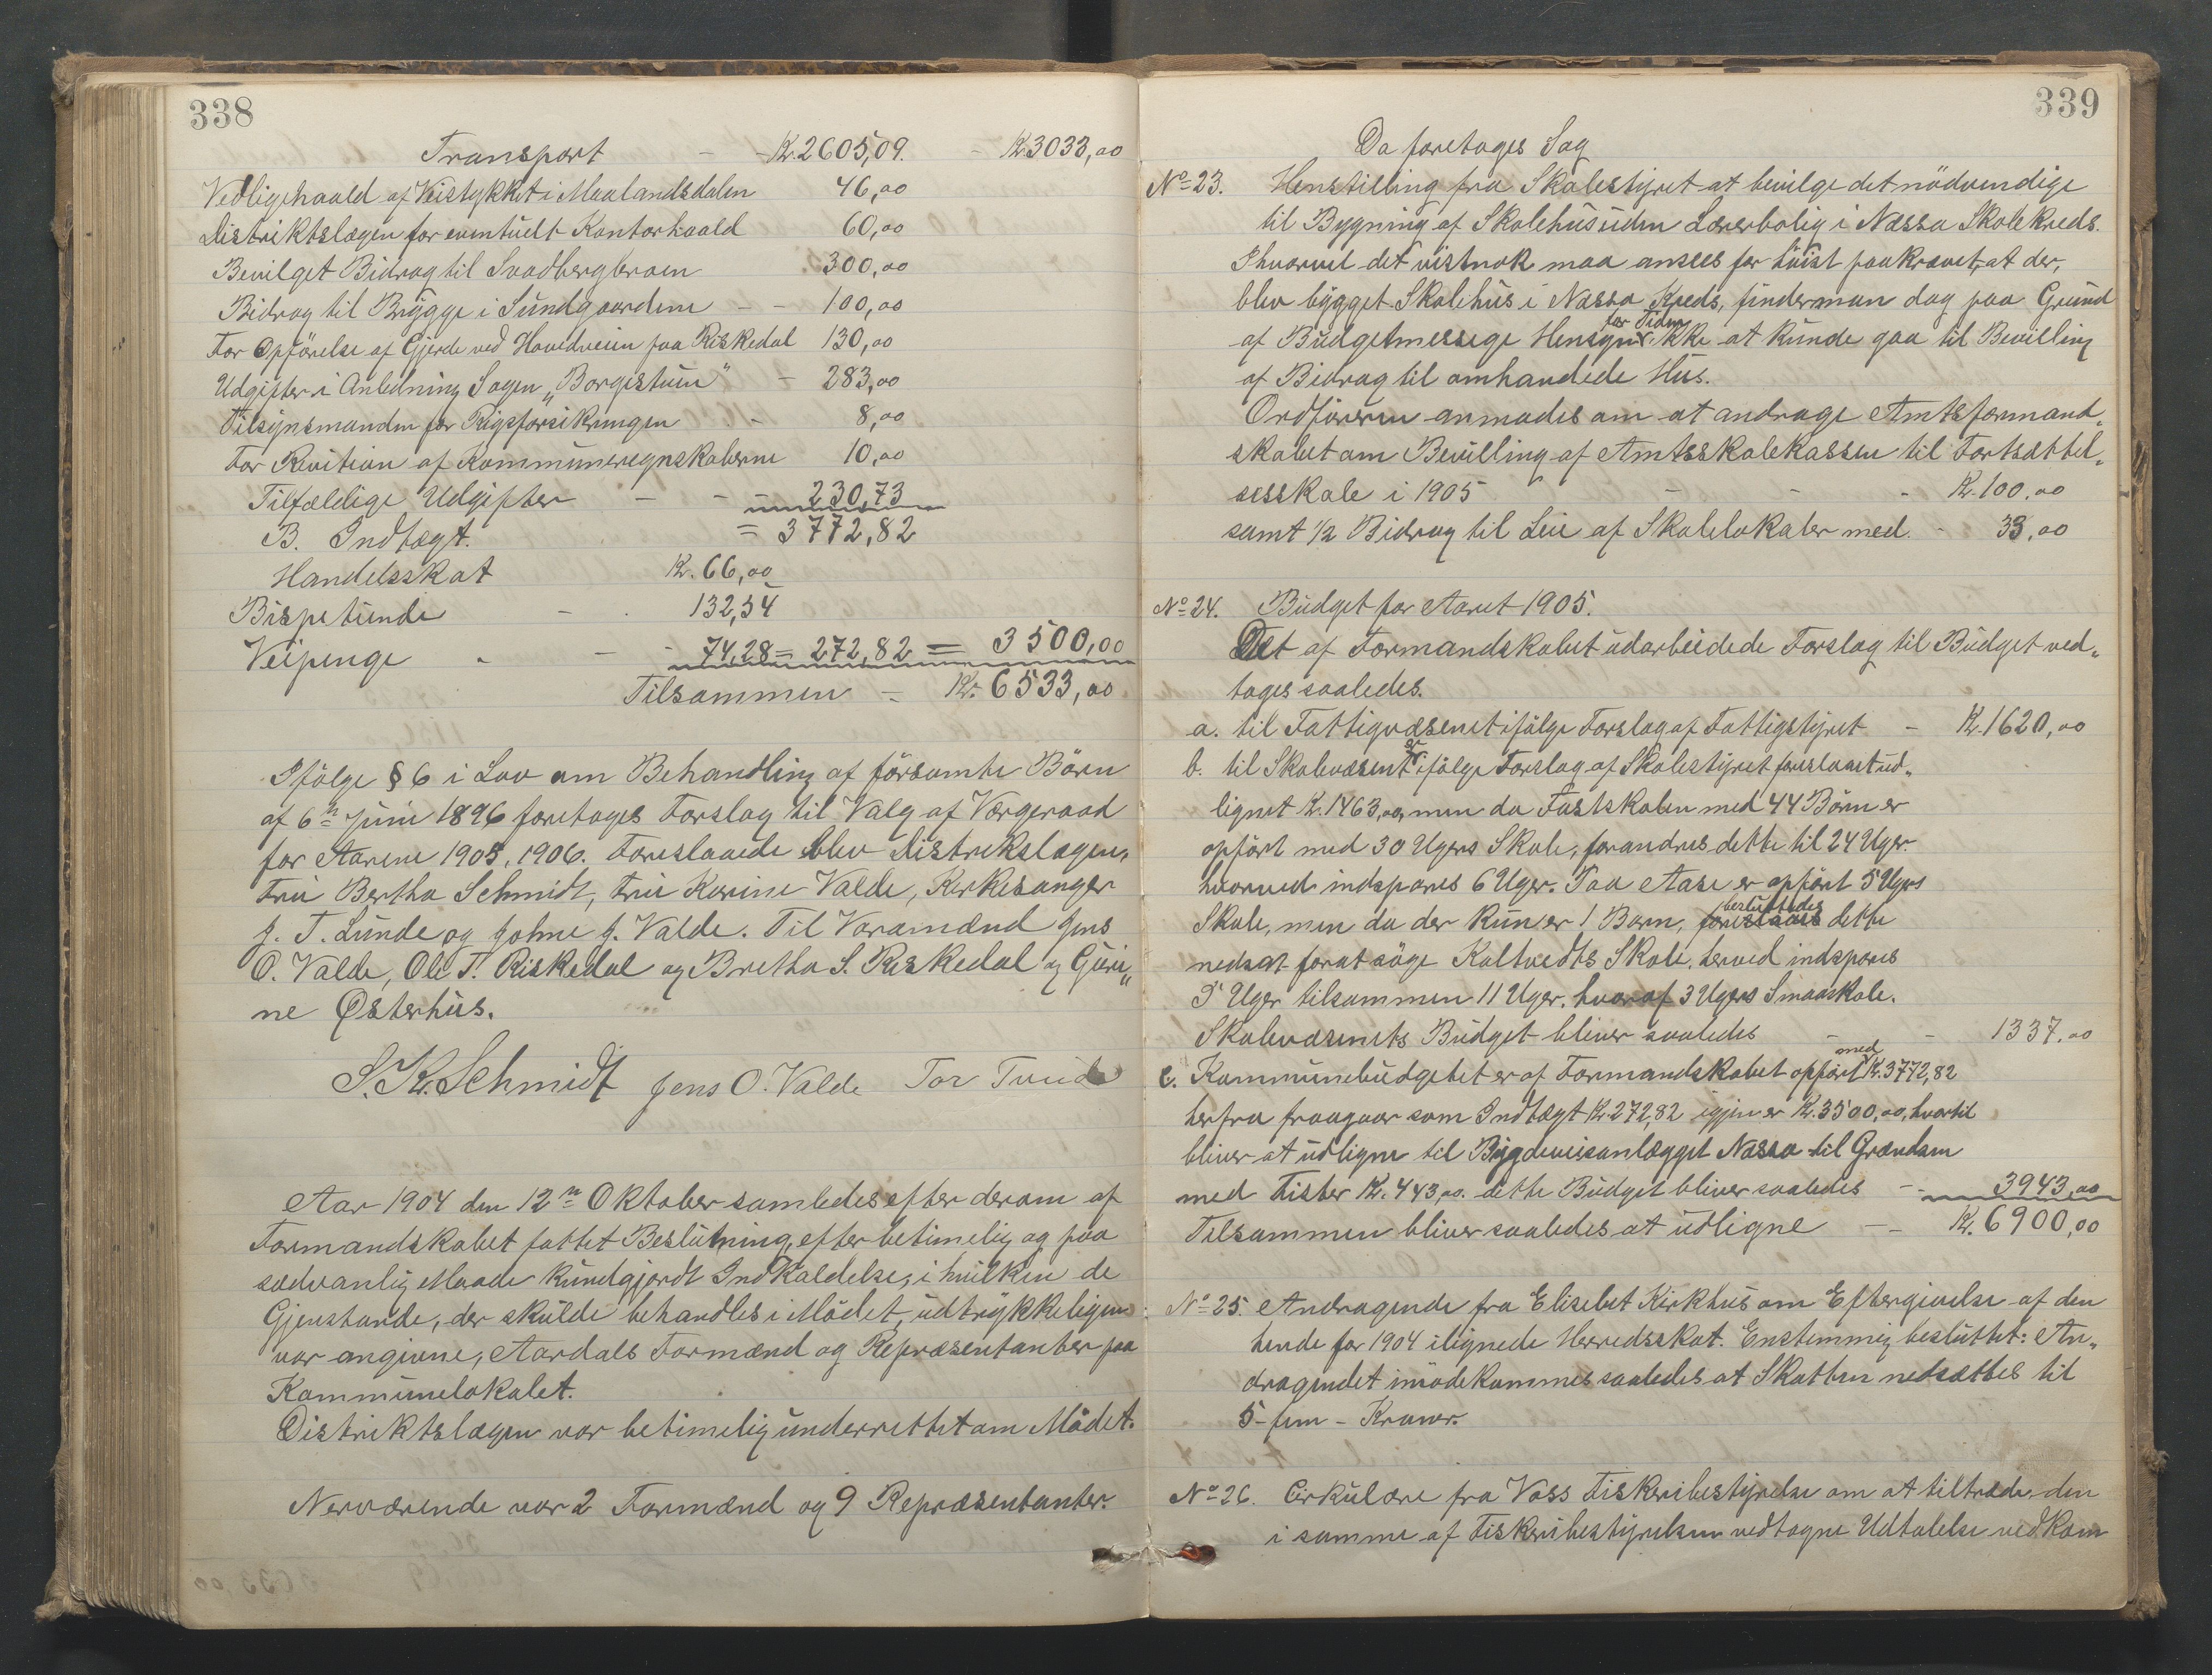 338
Transport - - Kr. 2605,09. - Kr. 3033,00
Vedligehaald af Veistykket i Maalandsdalen 46,00
Distriktslægen for eventuelt Kontorhaald 60,00
Bevilget Bidrag til Svadbergbroen 300,00
Bidrag til Brygge i Sundgaarden - - 100,00
For Opförelse af Gjerde ved Hovedveien paa Riskedal 130,00
Udgifter i Anledning Sagen „Borgestuen" - 283,00
Tilsynsmanden for Rigsforsikringen - 8,00
For Revition af Kommuneregnskaberne 10,00
Tilfældige Udgifter - - - 230,73
B. Indtægt. = 3772,82
Handelsskat Kr. 66,00
Bispetiende - . 132,54
Veipenge - - - 74,28 = 272,82 = 3500,00
Tilsammen - Kr. 6533,00
Ifölge § 6 i Lov om Behandling af försomte Börn
af 6te Juni 1896 foretoges Forslag til Valg af Værgeraad
for Aarene 1905, 1906. Foreslaaede blev Distrikslægen,
Fru Bertha Schmidt, Fru Karine Valde, Kirkesanger
J. T. Lunde og Johne J. Valde. Til Varamænd Jens
O. Valde, Ole T. Riskedal og Bretha S. Riskedal og Guri„
ne Østerhus.
S. Kr. Schmidt Jens O. Valde Tor Tveid
Aar 1904 den 12te Oktober samledes efter derom af
Formandskabet fattet Beslutning, efter betimelig og paa
sædvanlig Maade kundgjordt Indkaldelse, i hvilken de
Gjenstande, der skulde behandles i Mödet, udtrykkeligen
var angivne, Aardals Formænd og Repræsentanter paa
Kommunelokalet.
Distriktslægen var betimelig underrettet om Mödet.
Nerværende var 2 Formænd og 9 Repræsentanter.
339
Da foretages Sag
No 23. Henstilling fra Skolestyret at bevilge det nödvendige
til Bygning af Skolehus uden Lærerbolig i Næssa Skolekreds.
Ihvorvel det vistnok maa ansees for höist paakrævet, at der,
blev bygget Skolehus i Næssa Kreds, finder man dog paa Grund
af Budgetmessige Hensyn for Tiden ikke at kunde gaa til Bevilling
af Bidrag til omhandlede Hus.
Ordföreren anmodes om at andrage Amtsformand„
skabet om Bevilling af Amtsskolekassen til Fortsættel„
sesskole i 1905 - - - Kr. 100,00
samt 1/2 Bidrag til Leie af Skolelokaler med - 33,00
No 24. Budget for Aaret 1905.
Det af Formandskabet udarbeidede Forslag til Budget ved„
toges saaledes.
a. til Fattigvæsenet ifölge Forslag af Fattigstyret - Kr. 1620,00
b. til Skolevæsenet er ifölge Forslag af Skolestyret foreslaaet ud„
lignet Kr. 1463,00, men da Fastskolen med 44 Börn er
opfört med 30 Ugers Skole, forandres dette til 24 Uger.
hvorved indspares 6 Uger. Paa Aase er opfört 5 Ugers
Skole, men da der kun er 1 Barn, foreslaaes besluttedes dette
nedsat for at söge Kaltvedts Skole, herved indspares
5 Uger tilsammen 11 Uger, hvoraf 3 Ugers Smaaskole.
Skolevæsenets Budget bliver saaledes - - 1337.00
c. Kommunebudgetet er af Formandskabet opfört med Kr. 3772,82
herfra fragaar som Indtægt Kr. 272,82 igjen er Kr. 3500,00, hvortil
bliver at udligne til Bygdeveisanlægget Næssa til Grændsen
med Fister Kr. 443,00. dette Budget bliver saaledes - 3943,00
Tilsammen bliver saaledes at udligne - Kr. 6900,00
No 25. Andragende fra Elisebet Kirkhus om Eftergivelse af den
hende for 1904 ilignede Herredsskat. Enstemmig besluttet: An„
dragendet imödekommes saaledes at Skatten nedsættes til
5 - fem - Kroner.
No 26. Cirkulære fra Voss Fiskeribestyrelse om at tiltræde den
i samme af Fiskeribestyrelsen vedtagne Udtalelse vedkom